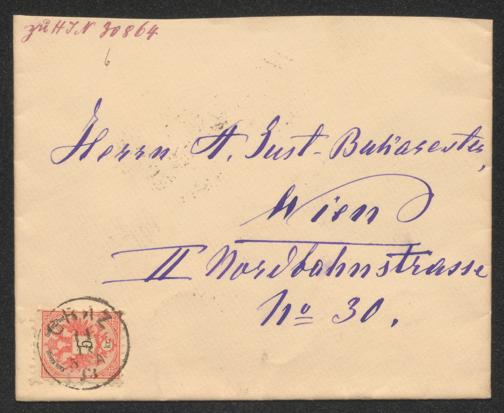 zu H.I.N. 90864
6
Herrn A. Just-Bukarester,
Wien
II Nordbahnstrasse
No 30.
GRAZ
5 kr.